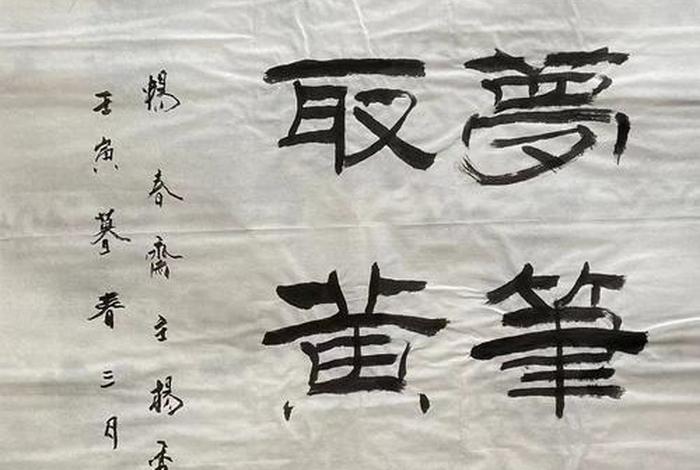 夢筆
取黃
暢春齋主楊
壬寅暮春三月